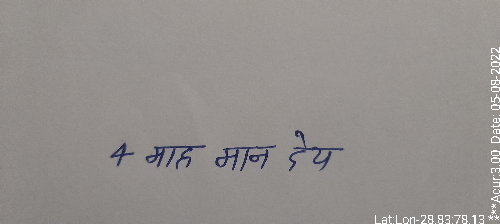 4 माह मान देय
Lat:Lon-28.83:78.13
***Acur:3.00 Date: 05-09-2022